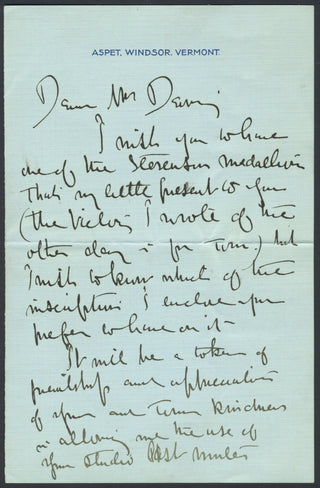 ASPET, WINDSOR, VERMONT.
Dear Mr Dewing
I wish you to have
one of the Stevenson medallions
That's my little present to you
(the Victory I wrote of the
other day is for Tom) but
I wish to know which of the
inscriptions I enclose you
prefer to have on it—
It will be a token of
friendship and appreciation
of your and Tom's kindness
in allowing me the use of
your studio last winter